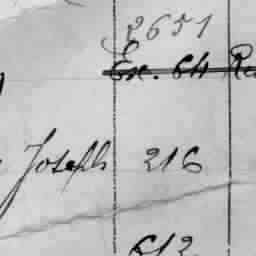 2651
Ex. 64
Joseph 216
612